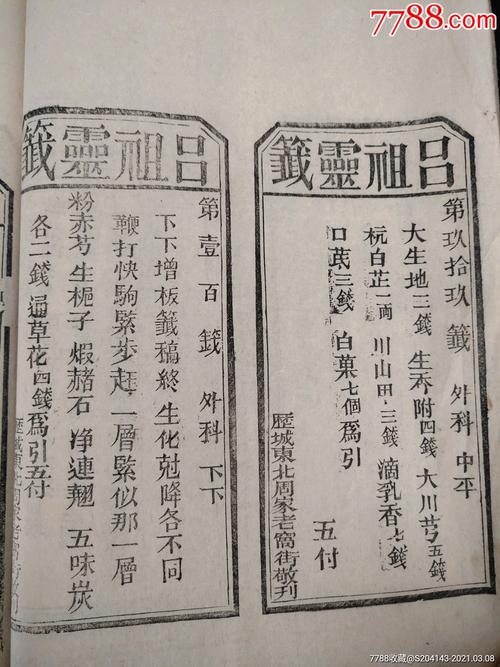 7788.com
呂祖靈籤
第玖拾玖籤 外科 中平
大生地三錢 生香附四錢 大川芎五錢
杭白芷一兩 川山甲三錢 滴乳香七錢
口芪三錢 白菓七個爲引
五付
歷城東北周家老窩街敬刊
呂祖靈籤
第壹百籤 外科 下下
下下增板籤稿終 生化尅降各不同
鞭打快駒緊步趕 一層緊似那一層
粉赤芍 生梔子 煆赭石 净連翹 五味炭
各二錢 通草花四錢爲引五付
歷城東北周家老窩街敬刊
7788收藏@S204143-2021.03.08